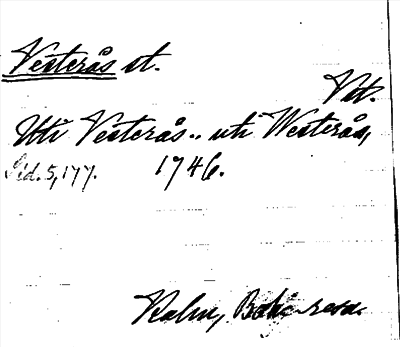 Vesterås st.
Vstm.
Uti Vesterås.. uti Westerås,
Sid. 5, 177. 1746.
Kalm, Bohus resa.